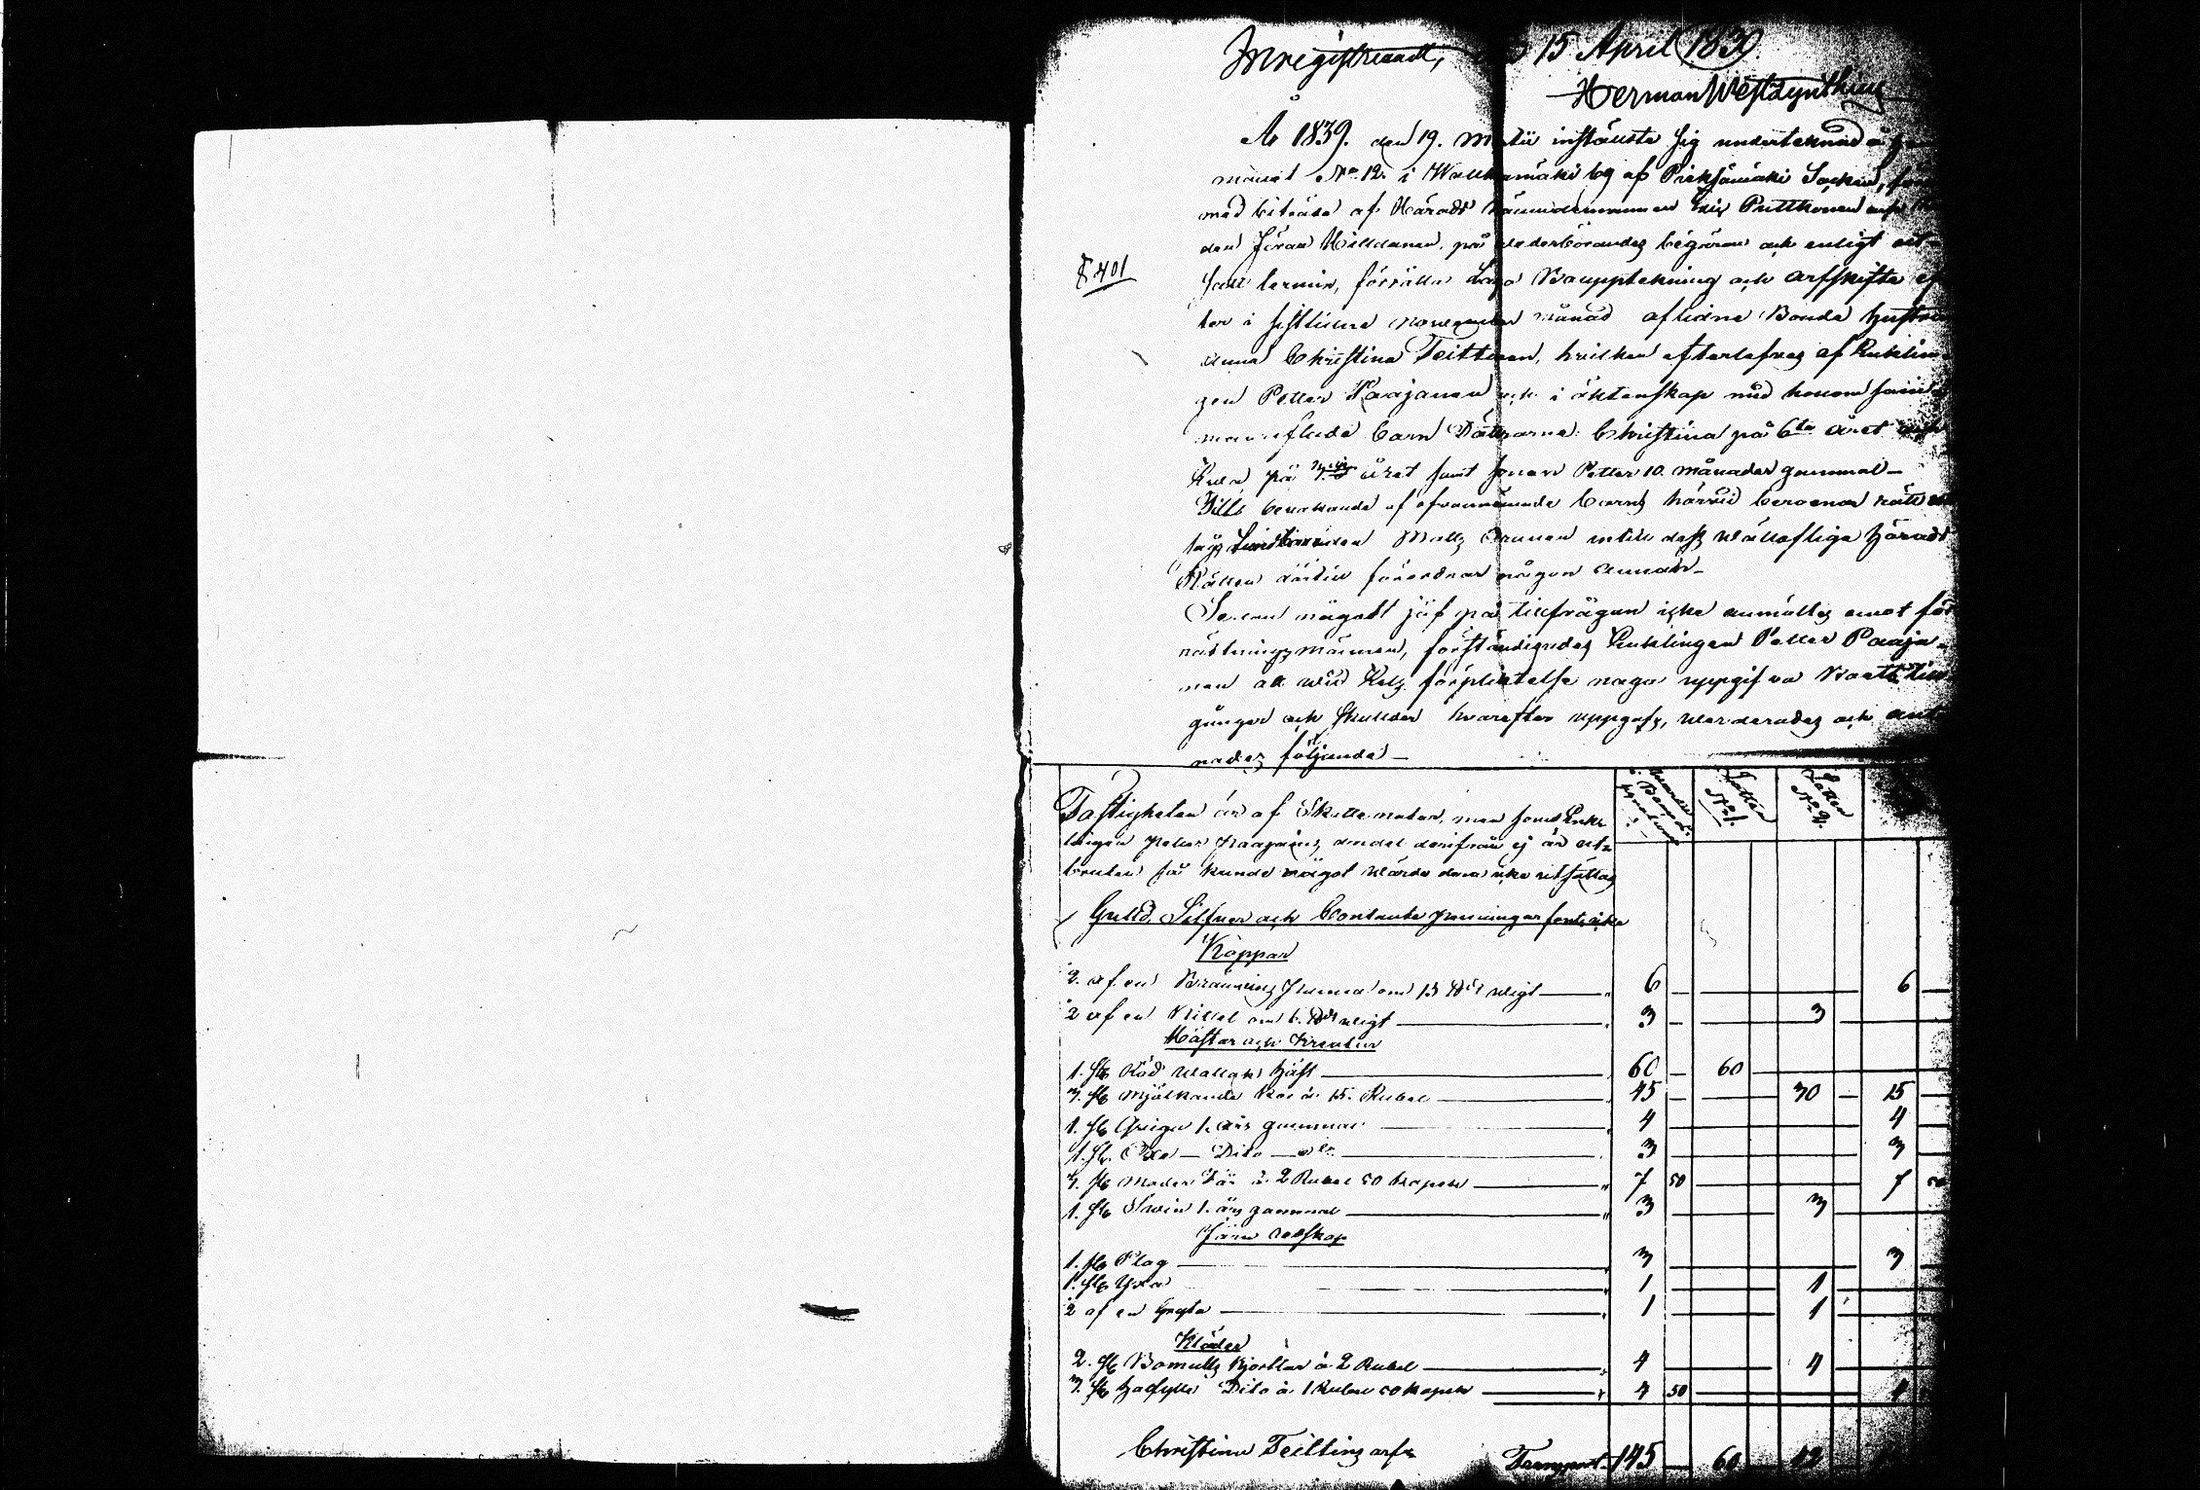 Inregistreradt, 15 April 1839.
Herman Westzynthius
År 1839. den 19. Martii instälte sig undertecknad å
No 12. i Wallkamäki by af Pieksämäki Socken,
med biträde af Härads Nämndemannen Erik Puttkonen
den Jöran Hilldanen, på wederbörandes begäran och enligt ut-
§ 401
satt termin, förrätta Laga Bouppteckning och arfskifte ef
ter i sistledne november månad aflidne Bonde hustrun
Anna Christina Teittinen, hvilken efterlefves af Enklin-
gen Petter Paajanen och i äktenskap med honom
barn Döttrarne Christina på 6te året och
på året samt sonen Petter 10. månader gammal—
bewakande af ofvannämnde barns härvid beroende rätt
Matts intill dess Wällofliga Härads
Rätten förordnar någon annan—
Som något jäf på tillfrågan icke anmältes emot för
rättningsmännen, förständigades Enklingen Petter Paaja-
nen att wid Edz förplicktelse noga uppgifva Boets till-
gångar och skulder hvarefter uppgafs, werderades och ant
nades följande—
Lotten No 1. Lotten No 2.
Fastigheten är af Skatte natur, men som Enk-
lingen Petter Paajains andel derifrån ej är ut-
bruten så kunde något wärde derå icke utsättas
Guld, Silfver och Contante penningar fants icke
Koppar
2 af en Bränwins Panna om 13 wigt 6 — 6 —
2 af en Kittel om 6. wigt 3 — 3
Hästar och Kreatur
1. st. Röd Wallack häst 60 — 60
3. st. Mjölkande Kor à 15. Rubel 45 — 30 — 15 —
1. st. Qviga 1. års gammal 4 4
1. st. Oxe — Dito — 3 3
3. st. Moder Får à 2 Rubel 50 kopek 7 50 7 50
1. st. Swin 1. års gammal 3 3
Järn redskap
1. st. Plog 3 3
1. st. Yxa 1 1
2 af en Gryta 1 1
Kläder
2. st. Bomulls Kjortlar à 2 Rubel 4 4
3. st. Dito à 1 Rubel 50 kopek 4 50 4
Christina Teittinz arfs Transport 145 — 60